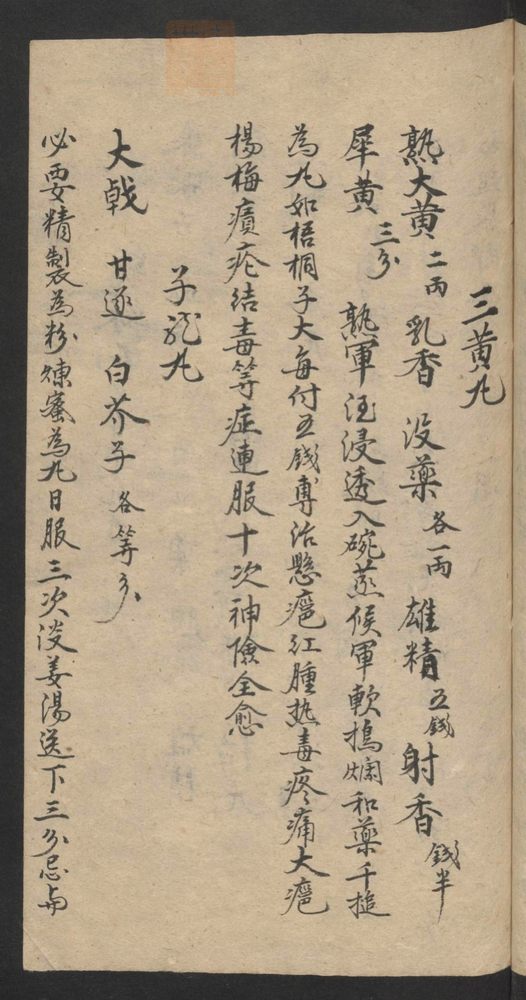 三黄丸
熟大黄二両 乳香 没藥各一両 雄精五錢 射香錢半
犀黄三分 熟軍酒浸透入碗蒸候軍軟搗爛和藥千搥
為丸如梧桐子大每付五錢専治懸癰紅腫热毒疼痛大癰
楊梅瘡結毒等症連服十次神險全愈
子龍丸
大戟 甘遂 白芥子各等分
必要精製為粉煉蜜為丸日服三次淡姜湯送下三分忌与